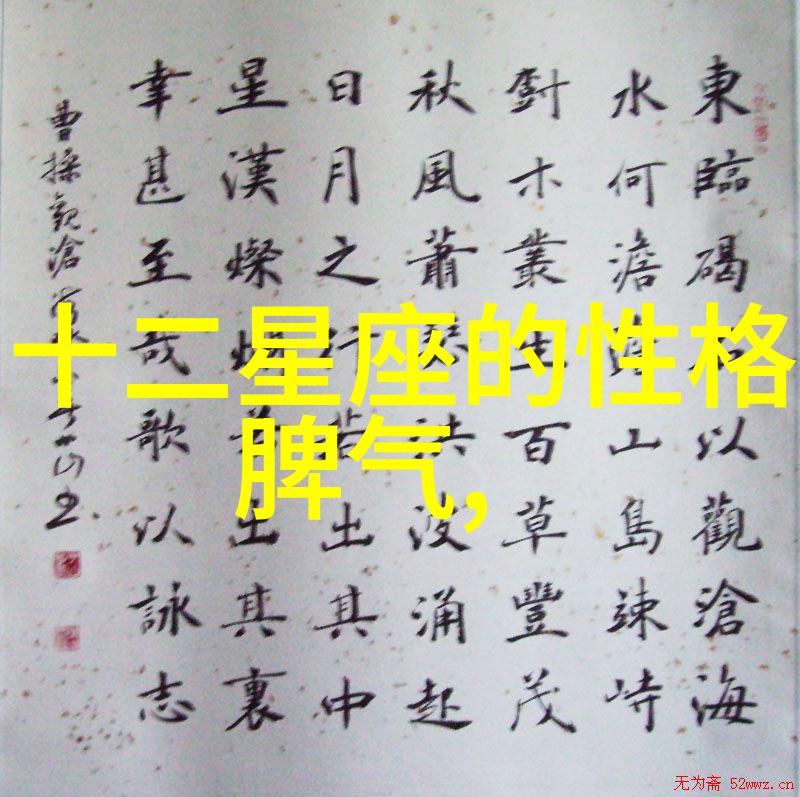 十二星座的性格
脾气,
東臨碣石以觀滄海
水何澹山島竦峙
木叢生百草豐茂
秋風蕭瑟洪波涌起
日月之行若出其中
星漢燦爛若出其裏
幸甚至哉歌以詠志
曹操觀滄
无为斋 52wwz.cn